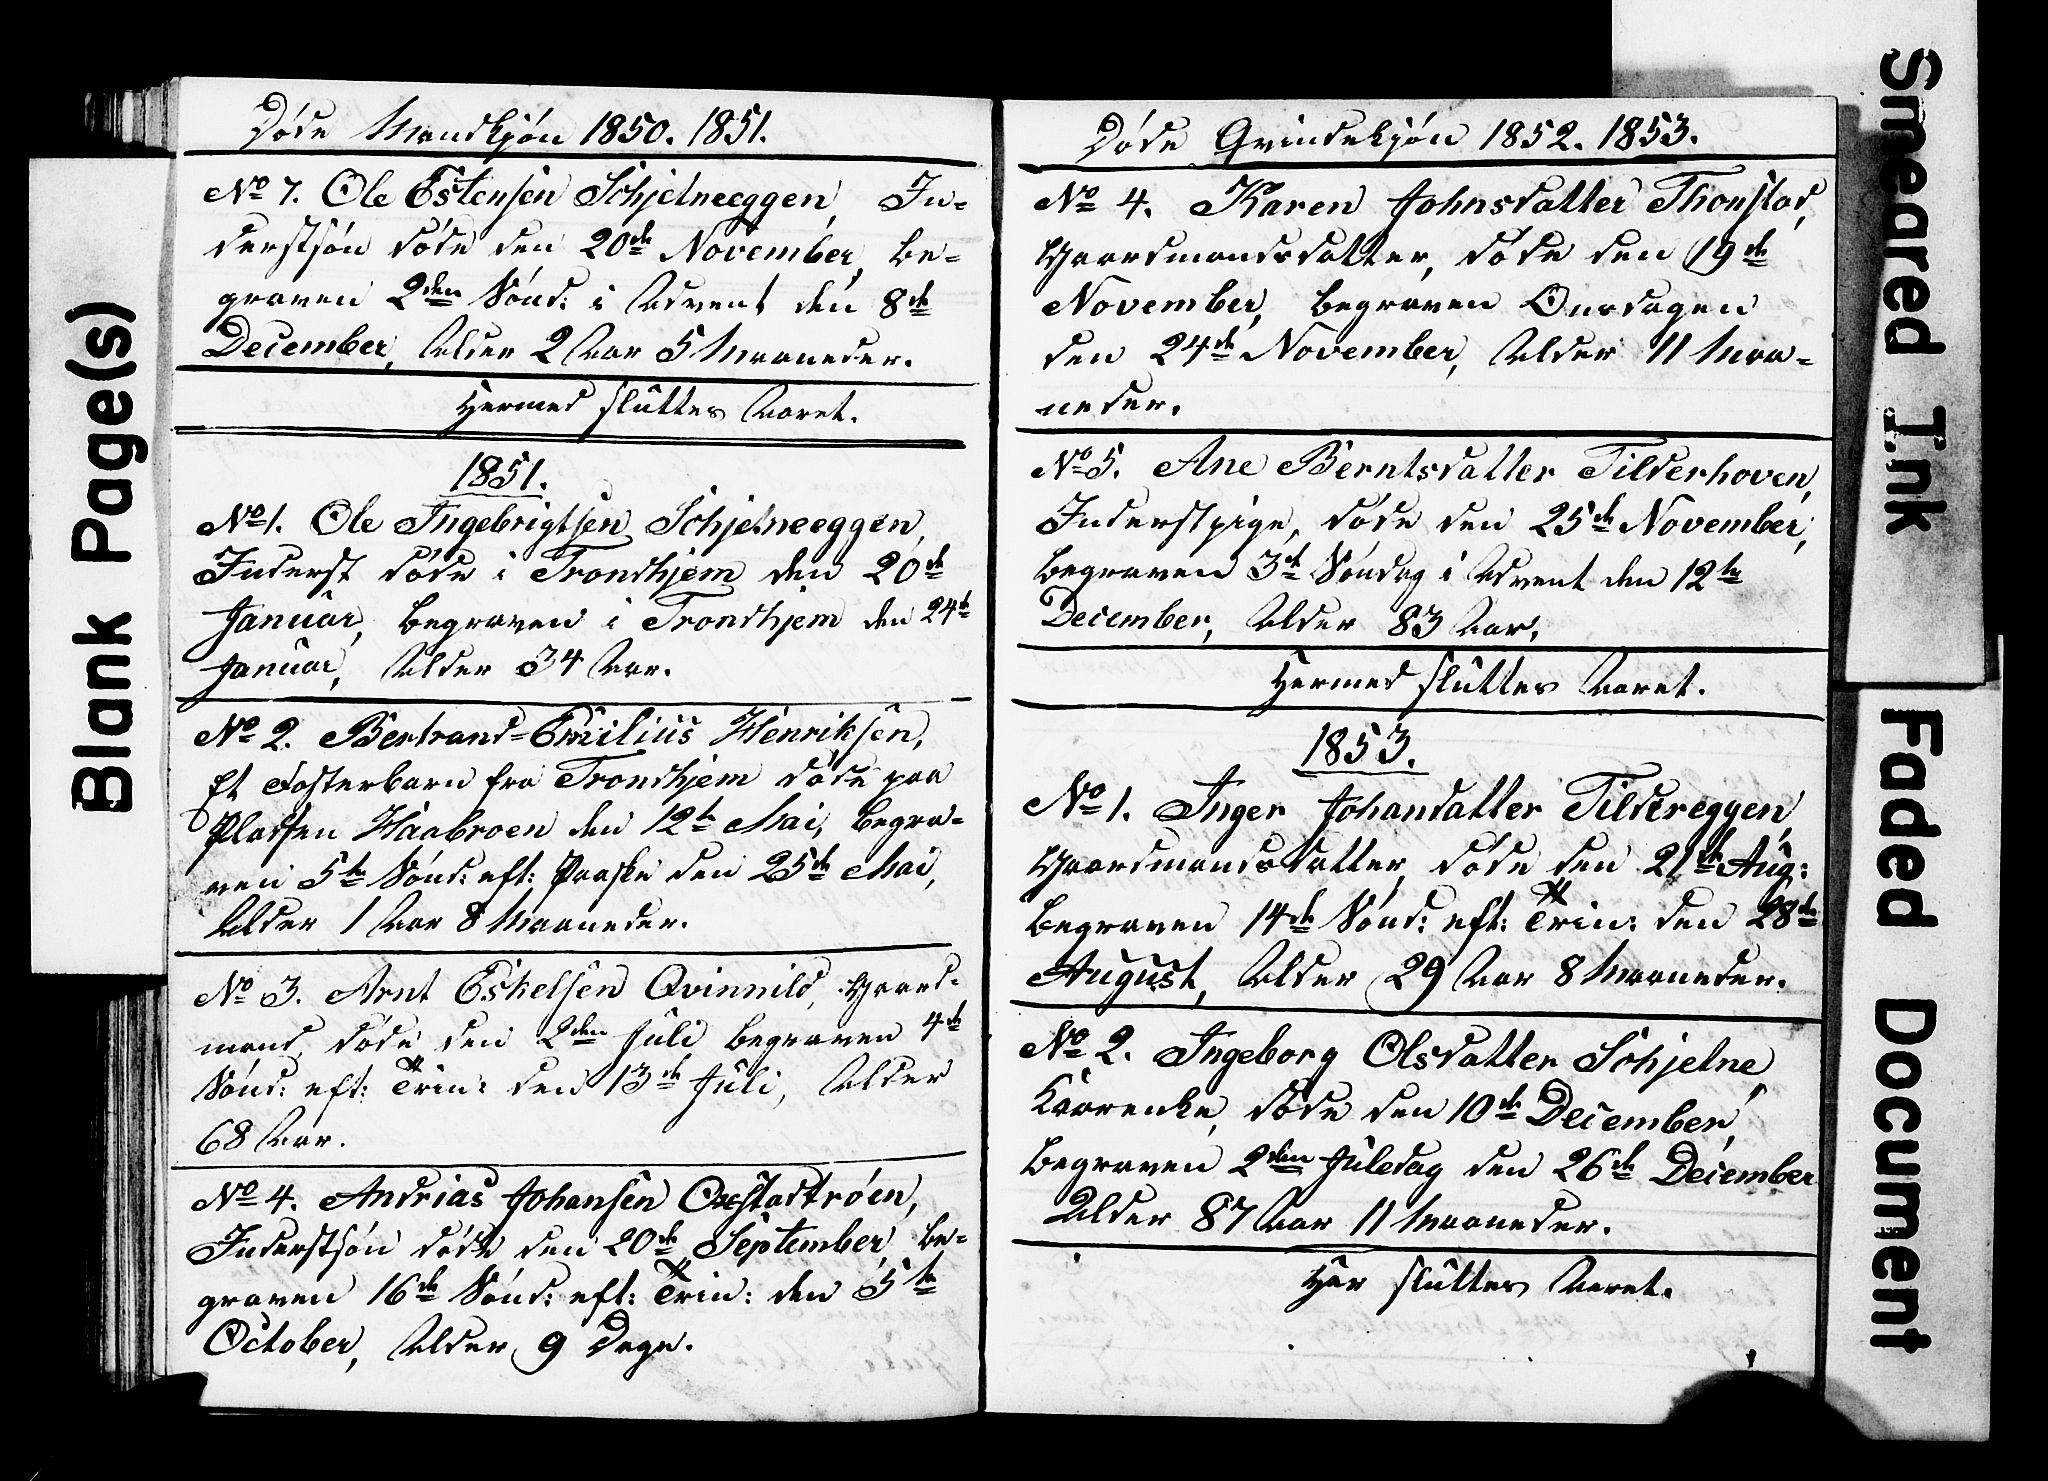 Døde Mandkjøn 1850. 1851.
No 7. Ole Estensen Schjelneeggen, In-
derstsøn døde den 20de November, be-
graven 2den Sønd: i Advent den 8de
December, Alder 2 Aar 5 Maaneder.
Hermed sluttes Aaret.
1851.
No 1. Ole Ingebrigtsen Schjelneeggen,
Inderst døde i Trondhjem den 20de
Januar, begraven i Trondhjem den 24de
Januar, Alder 34 Aar.
No 2. Bertrand-Emilius Henriksen,
et Fosterbarn fra Trondhjem døde paa
Pladsen Haabroen den 12te Mai, begra-
ven 5te Sønd: eft: Paaske den 25de Mai,
Alder 1 Aar 8 Maaneder.
No 3. Arnt Eskelsen Qvinnild, Gaard-
mand, døde den 2den Juli begraven 4de
Sønd: eft: Trin: den 13de Juli, Alder
68 Aar.
No 4. Andrias Johansen Orestadtrøen,
Inderstsøn døde den 20de September, be-
graven 16de Sønd: eft: Trin: den 5te
October, Alder 9 Dage.
Døde Qvindekjøn 1852. 1853.
No 4. Karen Johnsdatter Thonstad,
Gaardmandsdatter, døde den 19de
November, begraven Onsdagen
den 24de November, Alder 11 Maa-
neder.
No 5. Ane Berntsdatter Tilderhoven,
Inderstpige, døde den 25de November,
begraven 3de Søndag i Advent den 12te
December, Alder 83 Aar.
Hermed sluttes Aaret.
1853.
No 1. Inger Johansdatter Tildereggen
Gaardmandsdatter, døde den 21de Aug:
begraven 14de Sønd: eft: Trin: den 28de
August, Alder 29 Aar 8 Maaneder.
No 2. Ingeborg Olsdatter Schjelne,
Kaarenke, døde den 10de December,
begraven 2den Juledag den 26de December
Alder 87 Aar 11 Maaneder.
Her sluttes Aaret.
Blank Page(s)
Smeared Ink
Faded Document